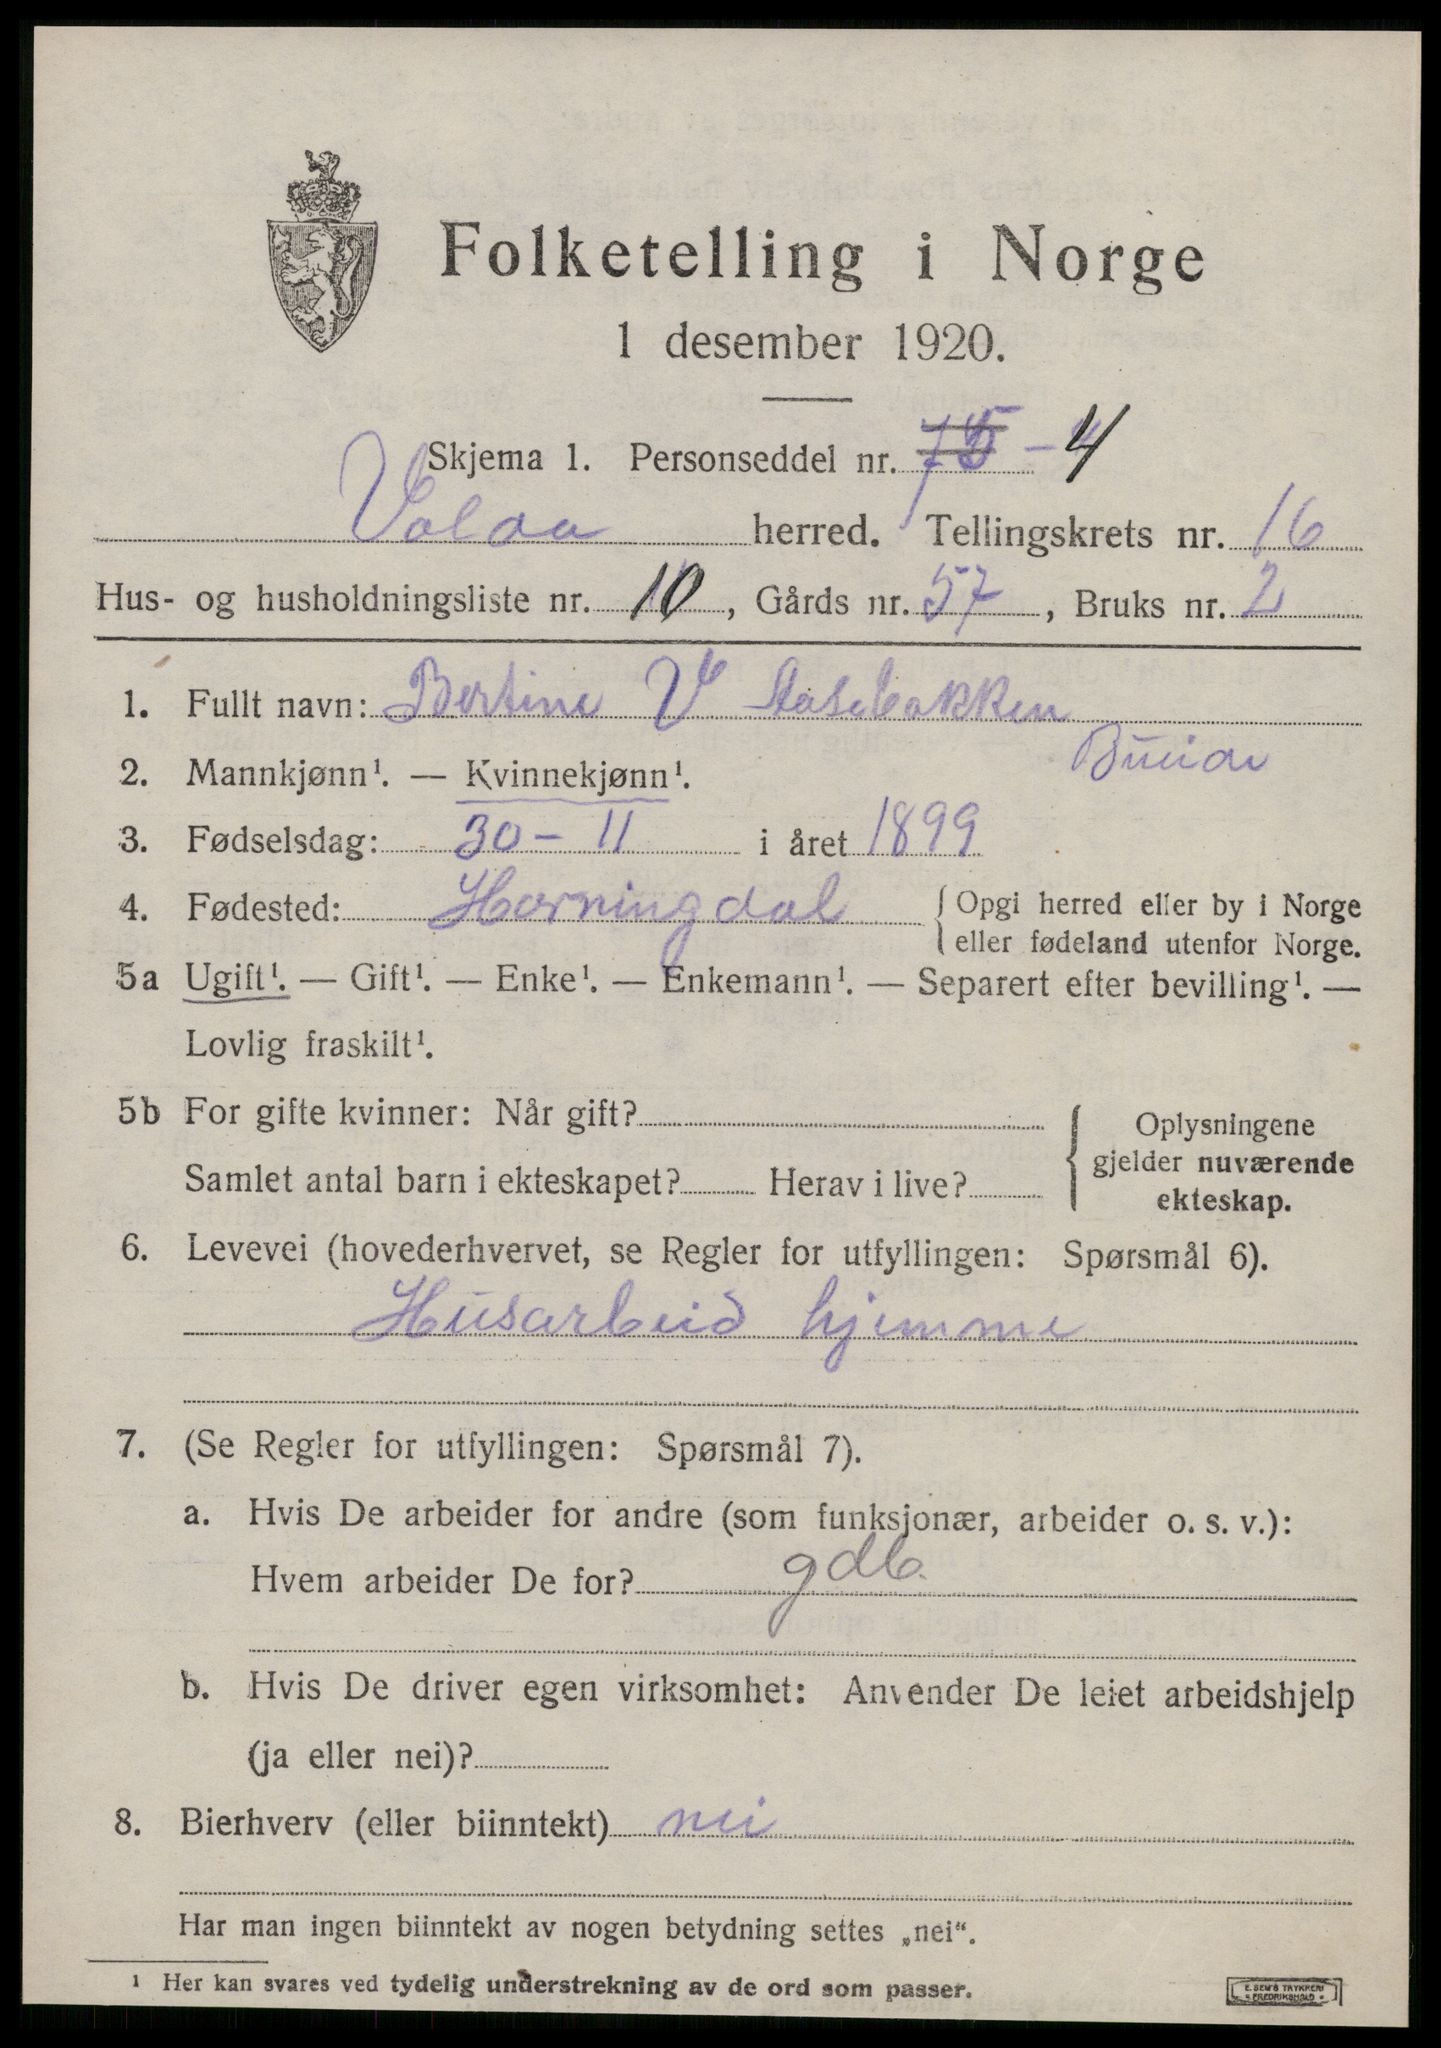 Folketelling i Norge
1 desember 1920.
Skjema 1. Personseddel nr. 75 - 4
Volda herred. Tellingskrets nr. 16
Hus- og husholdningsliste nr. 10, Gårds nr. 57, Bruks nr. 2
1. Fullt navn: Bertine V Aasebakken
2. Mannkjønn¹. — Kvinnekjønn¹.
3. Fødselsdag: 30 - 11 i året 1899
4. Fødested: Horningdal { Opgi herred eller by i Norge
eller fødeland utenfor Norge.
5a Ugift¹. — Gift¹. — Enke¹. — Enkemann¹. — Separert efter bevilling¹. —
Lovlig fraskilt¹.
5b For gifte kvinner: Når gift? { Oplysningene
gjelder nuværende
Samlet antal barn i ekteskapet? Herav i live?
ekteskap.
6. Levevei (hovederhvervet, se Regler for utfyllingen: Spørsmål 6).
Husarbeid hjemme
7. (Se Regler for utfyllingen: Spørsmål 7).
a. Hvis De arbeider for andre (som funksjonær, arbeider o. s. v.):
Hvem arbeider De for? gdb.
b. Hvis De driver egen virksomhet: Anvender De leiet arbeidshjelp
(ja eller nei)?
8. Bierhverv (eller biinntekt) nei
Har man ingen biinntekt av nogen betydning settes „nei“.
1 Her kan svares ved tydelig understrekning av de ord som passer.
E. SEM'S TRYKKERI
FREDRIKSHALD